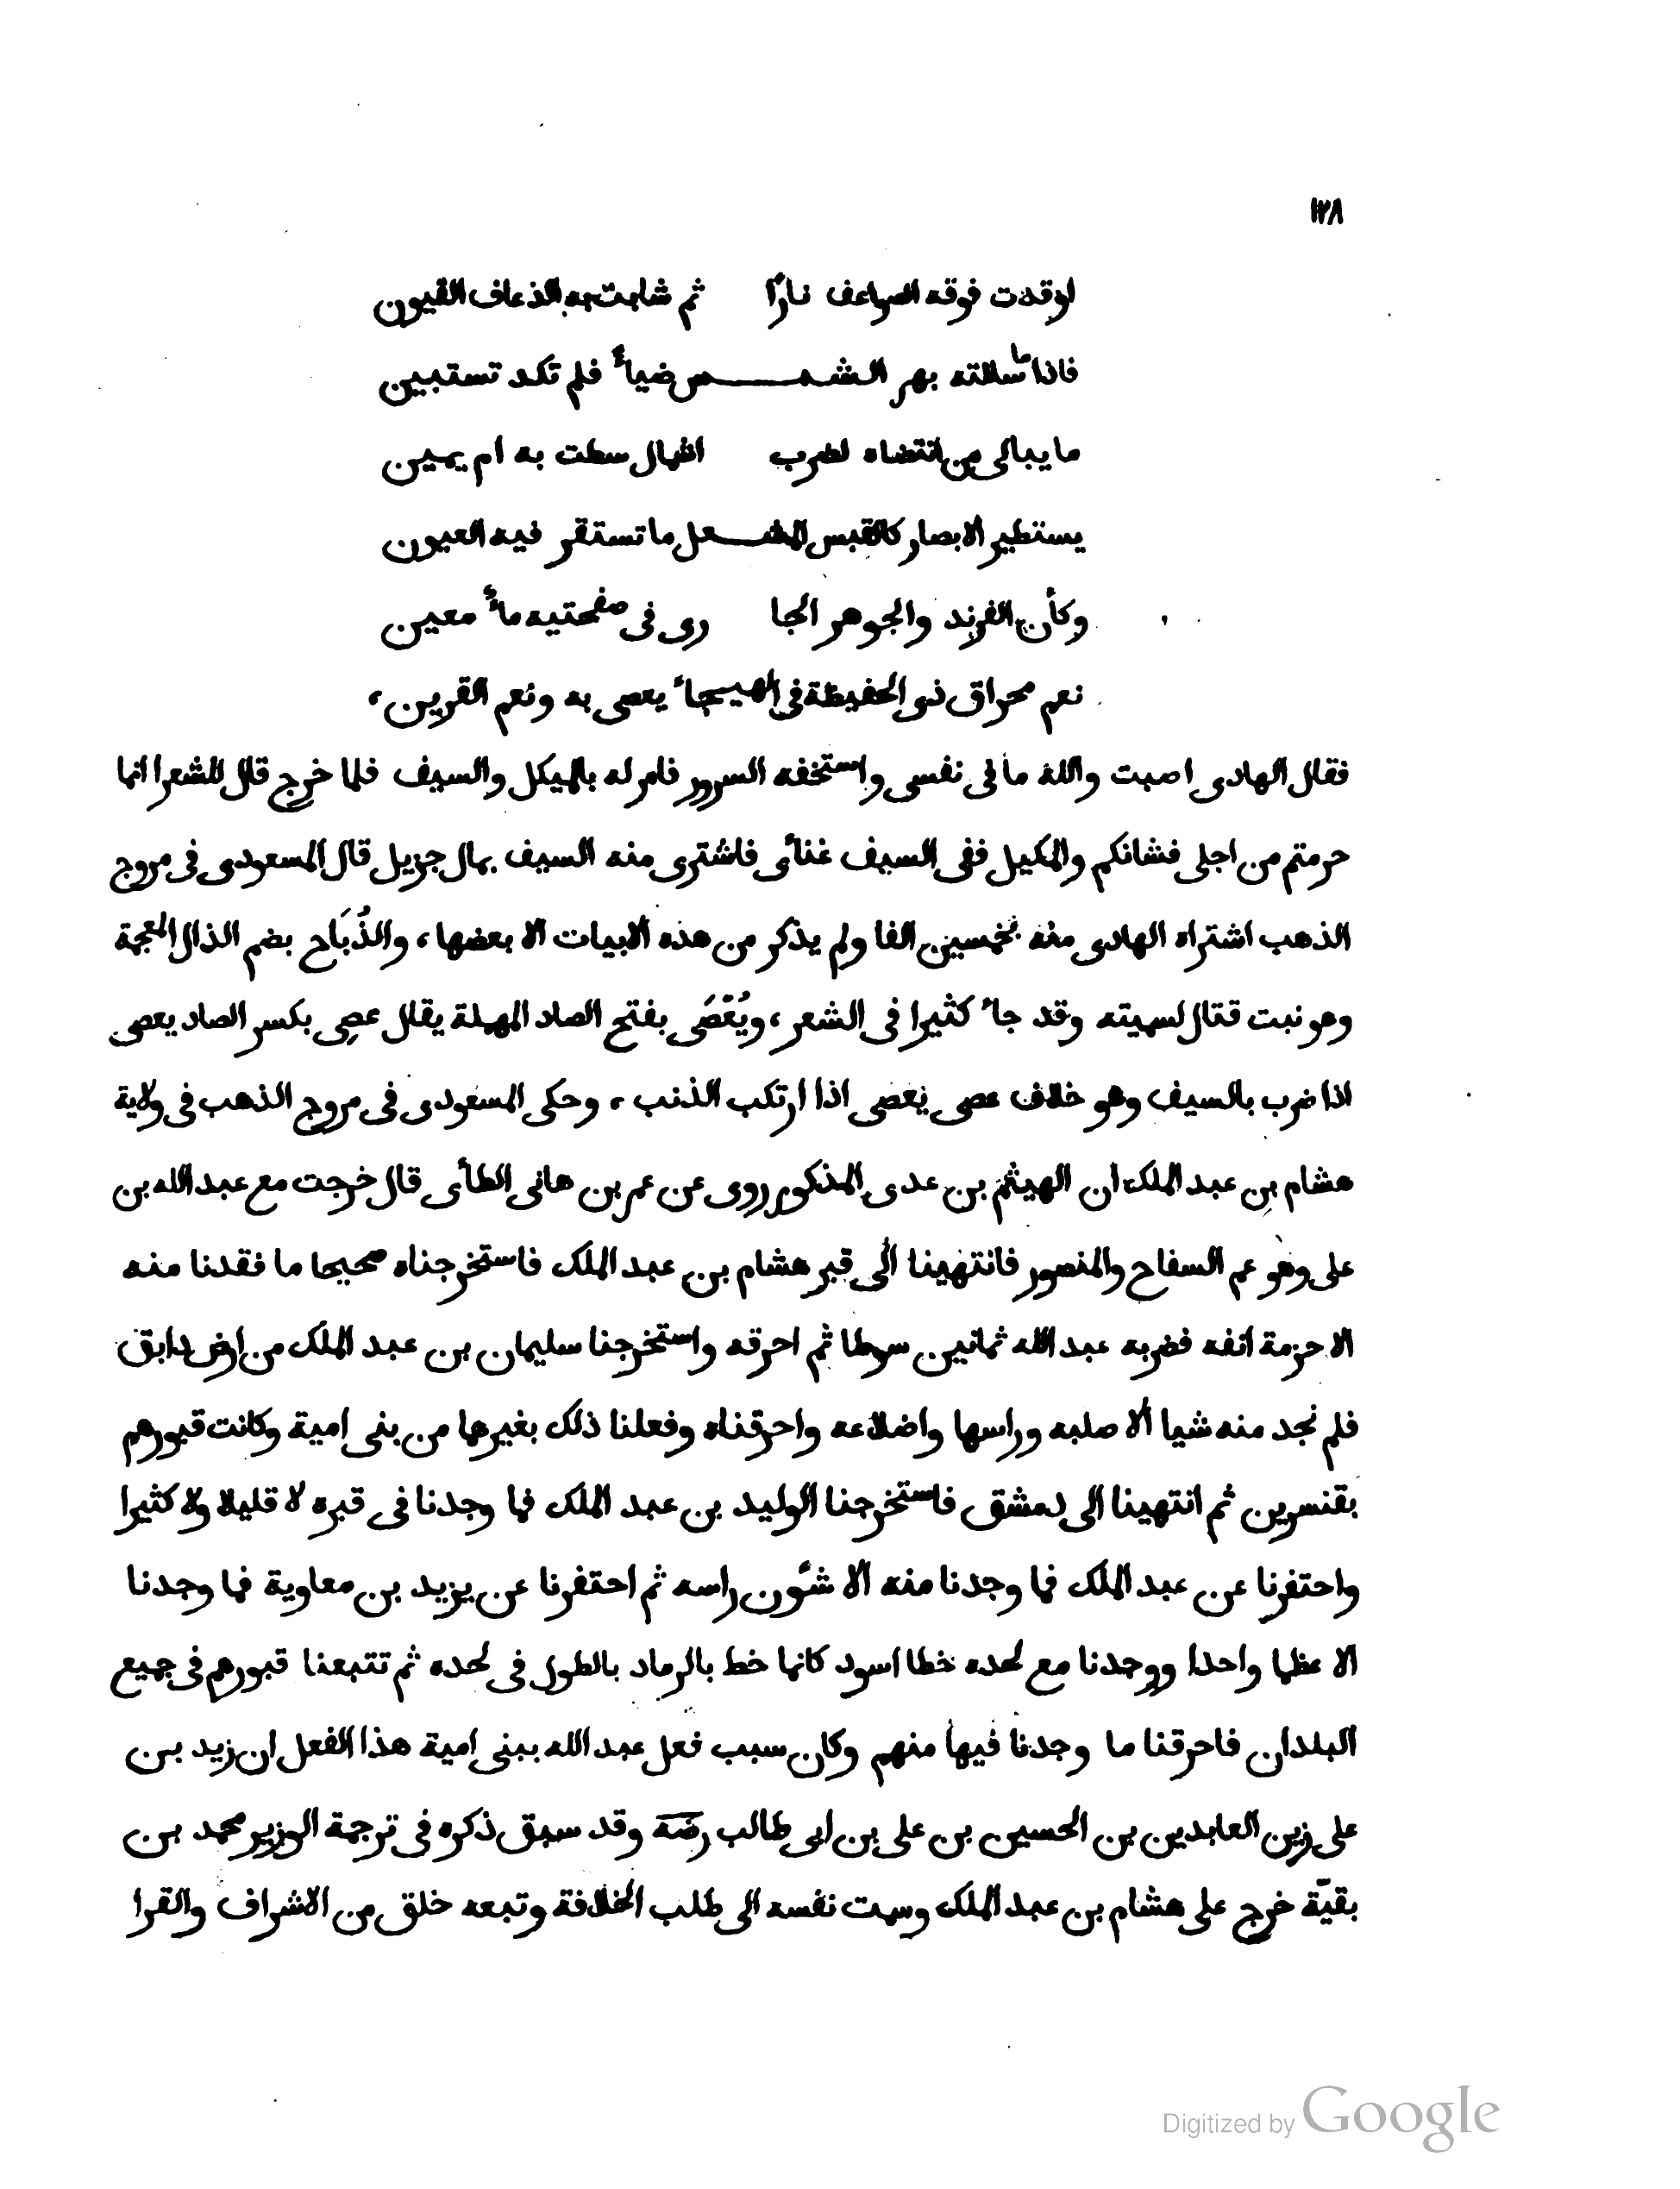 ١٢٨
اوقدت فوقه الصواعف نارًا ثم شابت به الذعاف القيون
فاذا ما سللته بهر الشمـــس ضيأً فلم تكد تستبين
ما يبالى من انتضاه لضرب اشمال سطت به ام يمين
يستطير الابصار كالقبس المشـــعل ما تستقر فيه العيون
وكأن الفرند والجوهر الجا رى فى صفحتيه مأً معين
نعم مخراق ذى الحفيظة فى الهيجأ يعصى به ونعم القرين،
فقال الهادى اصبت والله ما فى نفسى واستخفه السرور فامر له بالمكيل والسيف فلما خرج قال للشعرا انما
حرمتم من اجلى فشانكم والمكيل ففى السيف غنأى فاشترى منه السيف بمال جزيل قال المسعودى فى مروج
الذهب اشتراه الهادى منه بخمسين الفا ولم يذكر من هذه الابيات الا بعضها، والذُبَاح بضم الذال المعجمة
وهو نبت قتال لسميته وقد جأ كثيرا فى الشعر، ويُعْصَى بفتح الصاد المهملة يقال عصِى بكسر الصاد يعصى
اذا ضرب بالسيف وهو خلاف عصى يعصى اذا ارتكب الذنب، وحكى المسعودى فى مروج الذهب فى ولاية
هشام بن عبد الملك ان الهيثم بن عدى المذكور روى عن عمر بن هانى الطأى قال خرجت مع عبد الله بن
على وهو عم السفاح والمنصور فانتهينا الى قبر هشام بن عبد الملك فاستخرجناه صحيحا ما فقدنا منه
الا حزمة انفه فضربه عبد الله ثمانين سوطا ثم احرقه واستخرجنا سليمان بن عبد الملك من ارض دابق
فلم نجد منه شيا الا صلبه وراسها واضلاعه واحرقناه وفعلنا ذلك بغيرها من بنى امية وكانت قبورهم
بقنسرين ثم انتهينا الى دمشق فاستخرجنا الوليد بن عبد الملك فما وجدنا فى قبره لا قليلا ولا كثيرا
واحتفرنا عن عبد الملك فما وجدنا منه الا شئون راسه ثم احتفرنا عن يزيد بن معاوية فما وجدنا
الا عظما واحدا ووجدنا مع لحده خطا اسود كانما خط بالرماد بالطول فى لحده ثم تتبعنا قبورهم فى جميع
البلدان فاحرقنا ما وجدنا فيها منهم وكان سبب فعل عبد الله ببنى امية هذا الفعل ان زيد بن
على زين العابدين بن الحسين بن على بن ابى طالب رضه وقد سبق ذكره فى ترجمة الوزير محمد بن
بقيّة خرج على هشام بن عبد الملك وسمت نفسه الى طلب الخلافة وتبعه خلق من الاشراف والقرا
Digitized by Google